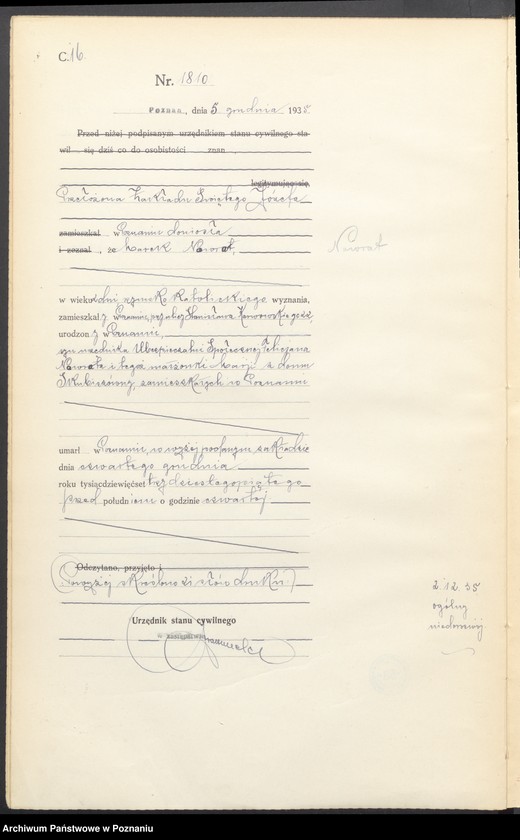 C. 16.
Nr. 1810
Poznań, dnia 5 grudnia 1935
Przed niżej podpisanym urzędnikiem stanu cywilnego sta-
wił się dziś co do osobistości znan
legitymując się
Przełożona Zakładu Świętego Józefa
zamieszkał w Poznaniu doniosła
i zeznał, że Marek Naworat,
Naworat
w wieku dni, rzymsko katolickiego wyznania,
zamieszkał w Poznaniu, przy ulicy Stanisława
urodzon y w Poznaniu,
syn urzędnika Ubezpieczalni Społecznej Felicjana
Naworata i tegoż małżonki Marji z domu
zamieszkałych w Poznaniu
umarł w Poznaniu, w wyżej podanym zakładzie
dnia czwartego grudnia
roku tysiąc dziewięćset trzydziestego piątego
przed południem o godzinie czwartej
Odczytano, przyjęto i
(Powyżej skreślono słów druku)
2.12.35
ogólny
niedorozwój
Urzędnik stanu cywilnego
w zastępstwie
Archiwum Państwowe w Poznaniu